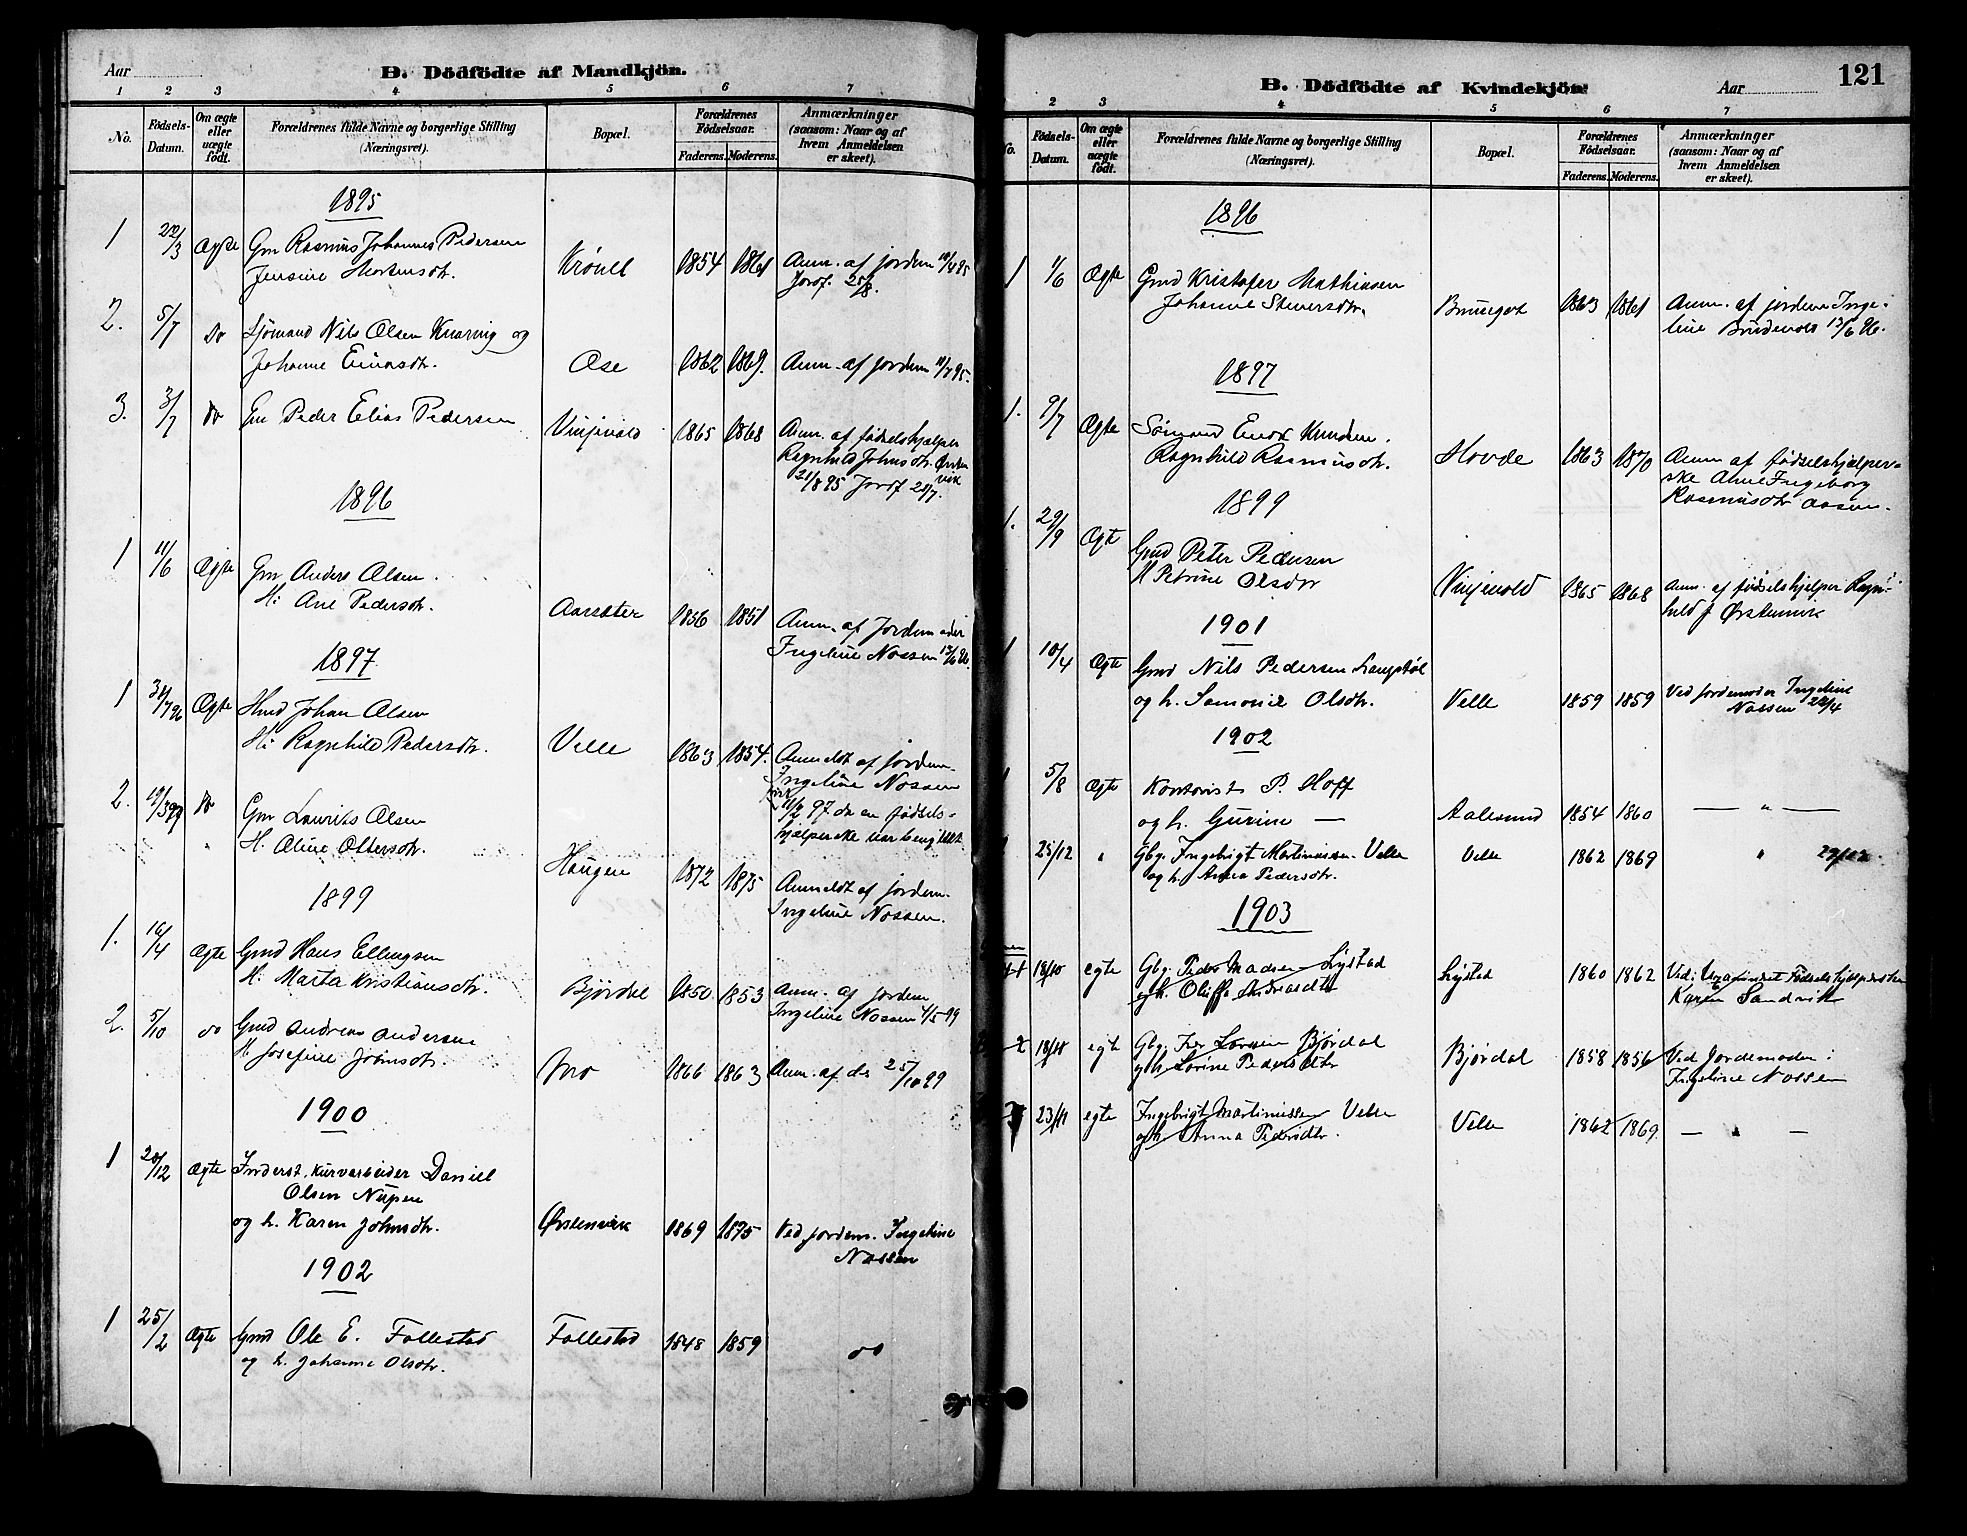 Aar
B. Dödfödte af Mandkjön.
1 2 3 4 5 6 7
No.
Födsels-Datum.
Om ægte eller uægte födt.
Forældrenes fulde Navne og borgerlige Stilling (Næringsvei).
Bopæl.
Forældrenes Födselsaar.
Faderens. Moderens.
Anmærkninger (saasom: Naar og af hvem Anmeldelsen er skeet).
1895
1 22/3 Ægte Gm Rasmus Johannes Pedersen Krövel 1854 1861 Anm. af jordem 10/4 95
Jensine Mortensdtr. Jordf.
2. 5/7 do Sjömand Nils Olsen Knarvig og
Johanne Einarsdtr. Ose 1862 1869. Anm. af jordem 11/7 95.
3. 3/7 do Em Peder Elias Pedersen Vinjevold 1865 1868 Anm. af fødselshjelper
Ragnhild Johnsdtr. Ørsten
vik
21/8 95 Jordf 28/7.
1896
1 11/6 Ægte Gm Anders Olsen.
H: Ane Pedersdtr. Aarsæter 1856 1851 Anm. af Jordemoder
Ingeline Nossen 13/6 96.
1897
1 31/7 96 Ægte Hmd Johan Olsen
H: Ragnhild Pedersdtr. Velle 1863 1854. Anmeldt af jordem.
Ingeline Nossen
11/2 97 da en fødsels-
hjelperske var benyttet
2. 19/3 97 do Gm Laurits Olsen
H. Oline Ottersdtr. Haugen 1872 1875 Anmeldt af jordem.
Ingeline Nossen.
1899
1. 16/4 Ægte Gmd Hans Ellingsen
H: Marta Kristiansdtr. Bjørdal 1850. 1853 Anm. af jordem
Ingeline Nossen 4/5 99
2. 5/10 do Gmd Andreas Andersen
H. Josefine Johnsdtr. Mo 1866 1863 Anm. af do 25/10 99
1900
1 20/12 Ægte Inderst, kurvarbeider Daniel
Olsen Nupen
og h. Karen Johnsdtr. Ørstenvik 1869 1875 Ved jordem. Ingeline
Nossen
1902
1 25/2 Ægte Gmd Ole E. Follestad Follestad 1848 1859 do
og h. Johanne Olsdtr.
B. Dödfödte af Kvindekjön
Aar
121
2 3 4 5 6 7
No.
Födsels-Datum.
Om ægte eller uægte födt.
Forældrenes fulde Navne og borgerlige Stilling (Næringsvei).
Bopæl.
Forældrenes Födselsaar.
Faderens. Moderens.
Anmærkninger (saasom: Naar og af hvem Anmeldelsen er skeet).
1896
1 1/6 Ægte Gmd Kristofer Mathiasen
Johanne Steversdtr. Brunegot 1863 1861 Anm. af jordem Inge-
line 13/6 96.
1897
1. 9/7 Ægte Sømand Knudsen.
Ragnhild Rasmusdtr. Hovde 1863 1870 Anm af fødselshjelper-
ske Ane Ingeborg
Rasmusdtr Aasen.
1899
1. 29/9 Ægte Gmd Peter Pedersen
H Petrine Olsdtr Vinjevold 1865 1868 Anm. af fødselshjelper Ragn-
hild J Ørstenvik
1901
1 10/4 Ægte Gmd Nils Pedersen Langstøl
og h. Samonie Olsdtr. Velle 1859 1859 Ved jordemoder Ingeline
Nossen 22/4
1902
5/8 Ægte Kontorist P. Hoff
og h. Gurine — Aalesund 1854 1860 — " —
25/12 " Gbg. Ingebrigt Martinussen Velle Velle 1862 1869 " 29/12.
og h. Anna Pedersdtr.
1903
1 18/10 egte Gbg. Peder Madsen Lystad Lystad 1860 1862 Ved: Fødselshjelpersken
og h. Oluffa Andreasdtr Karen Sandvik
2 18/11 egte Gbg. Iver Larsen Bjørdal Bjørdal 1858 1856 Ved Jordemoder:
og h. Lorine Pedersdtr Ingeline Nossen
3 23/11 egte Ingebrigt Martinussen Velle Velle 1862 1869. — " —
og h. Anna Pedersdtr.